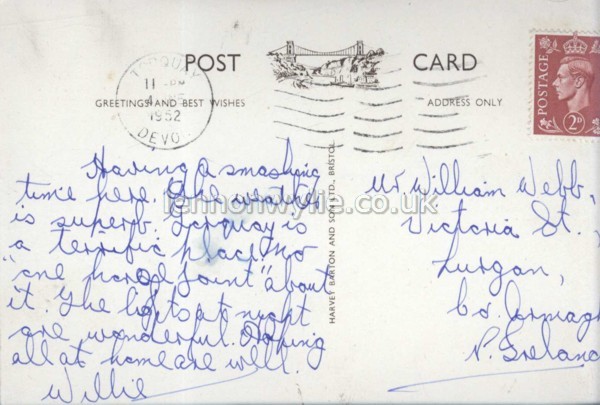 POST CARD
GREETINGS AND BEST WISHES
ADDRESS ONLY
TORQUAY
11
1952
DEVO
POSTAGE
2D
Having a smashing
time here. The weather
is superb. Torquay is
a terrific place. No
"one horse joint" about
it. The lights at night
are wonderful. Hoping
all at home are well.
Willie
HARVEY BARTON AND SON LTD., BRISTOL
Mr. William Webb,
Victoria St.,
Lurgan,
Co. Armagh
N. Ireland
lennonwylie.co.uk